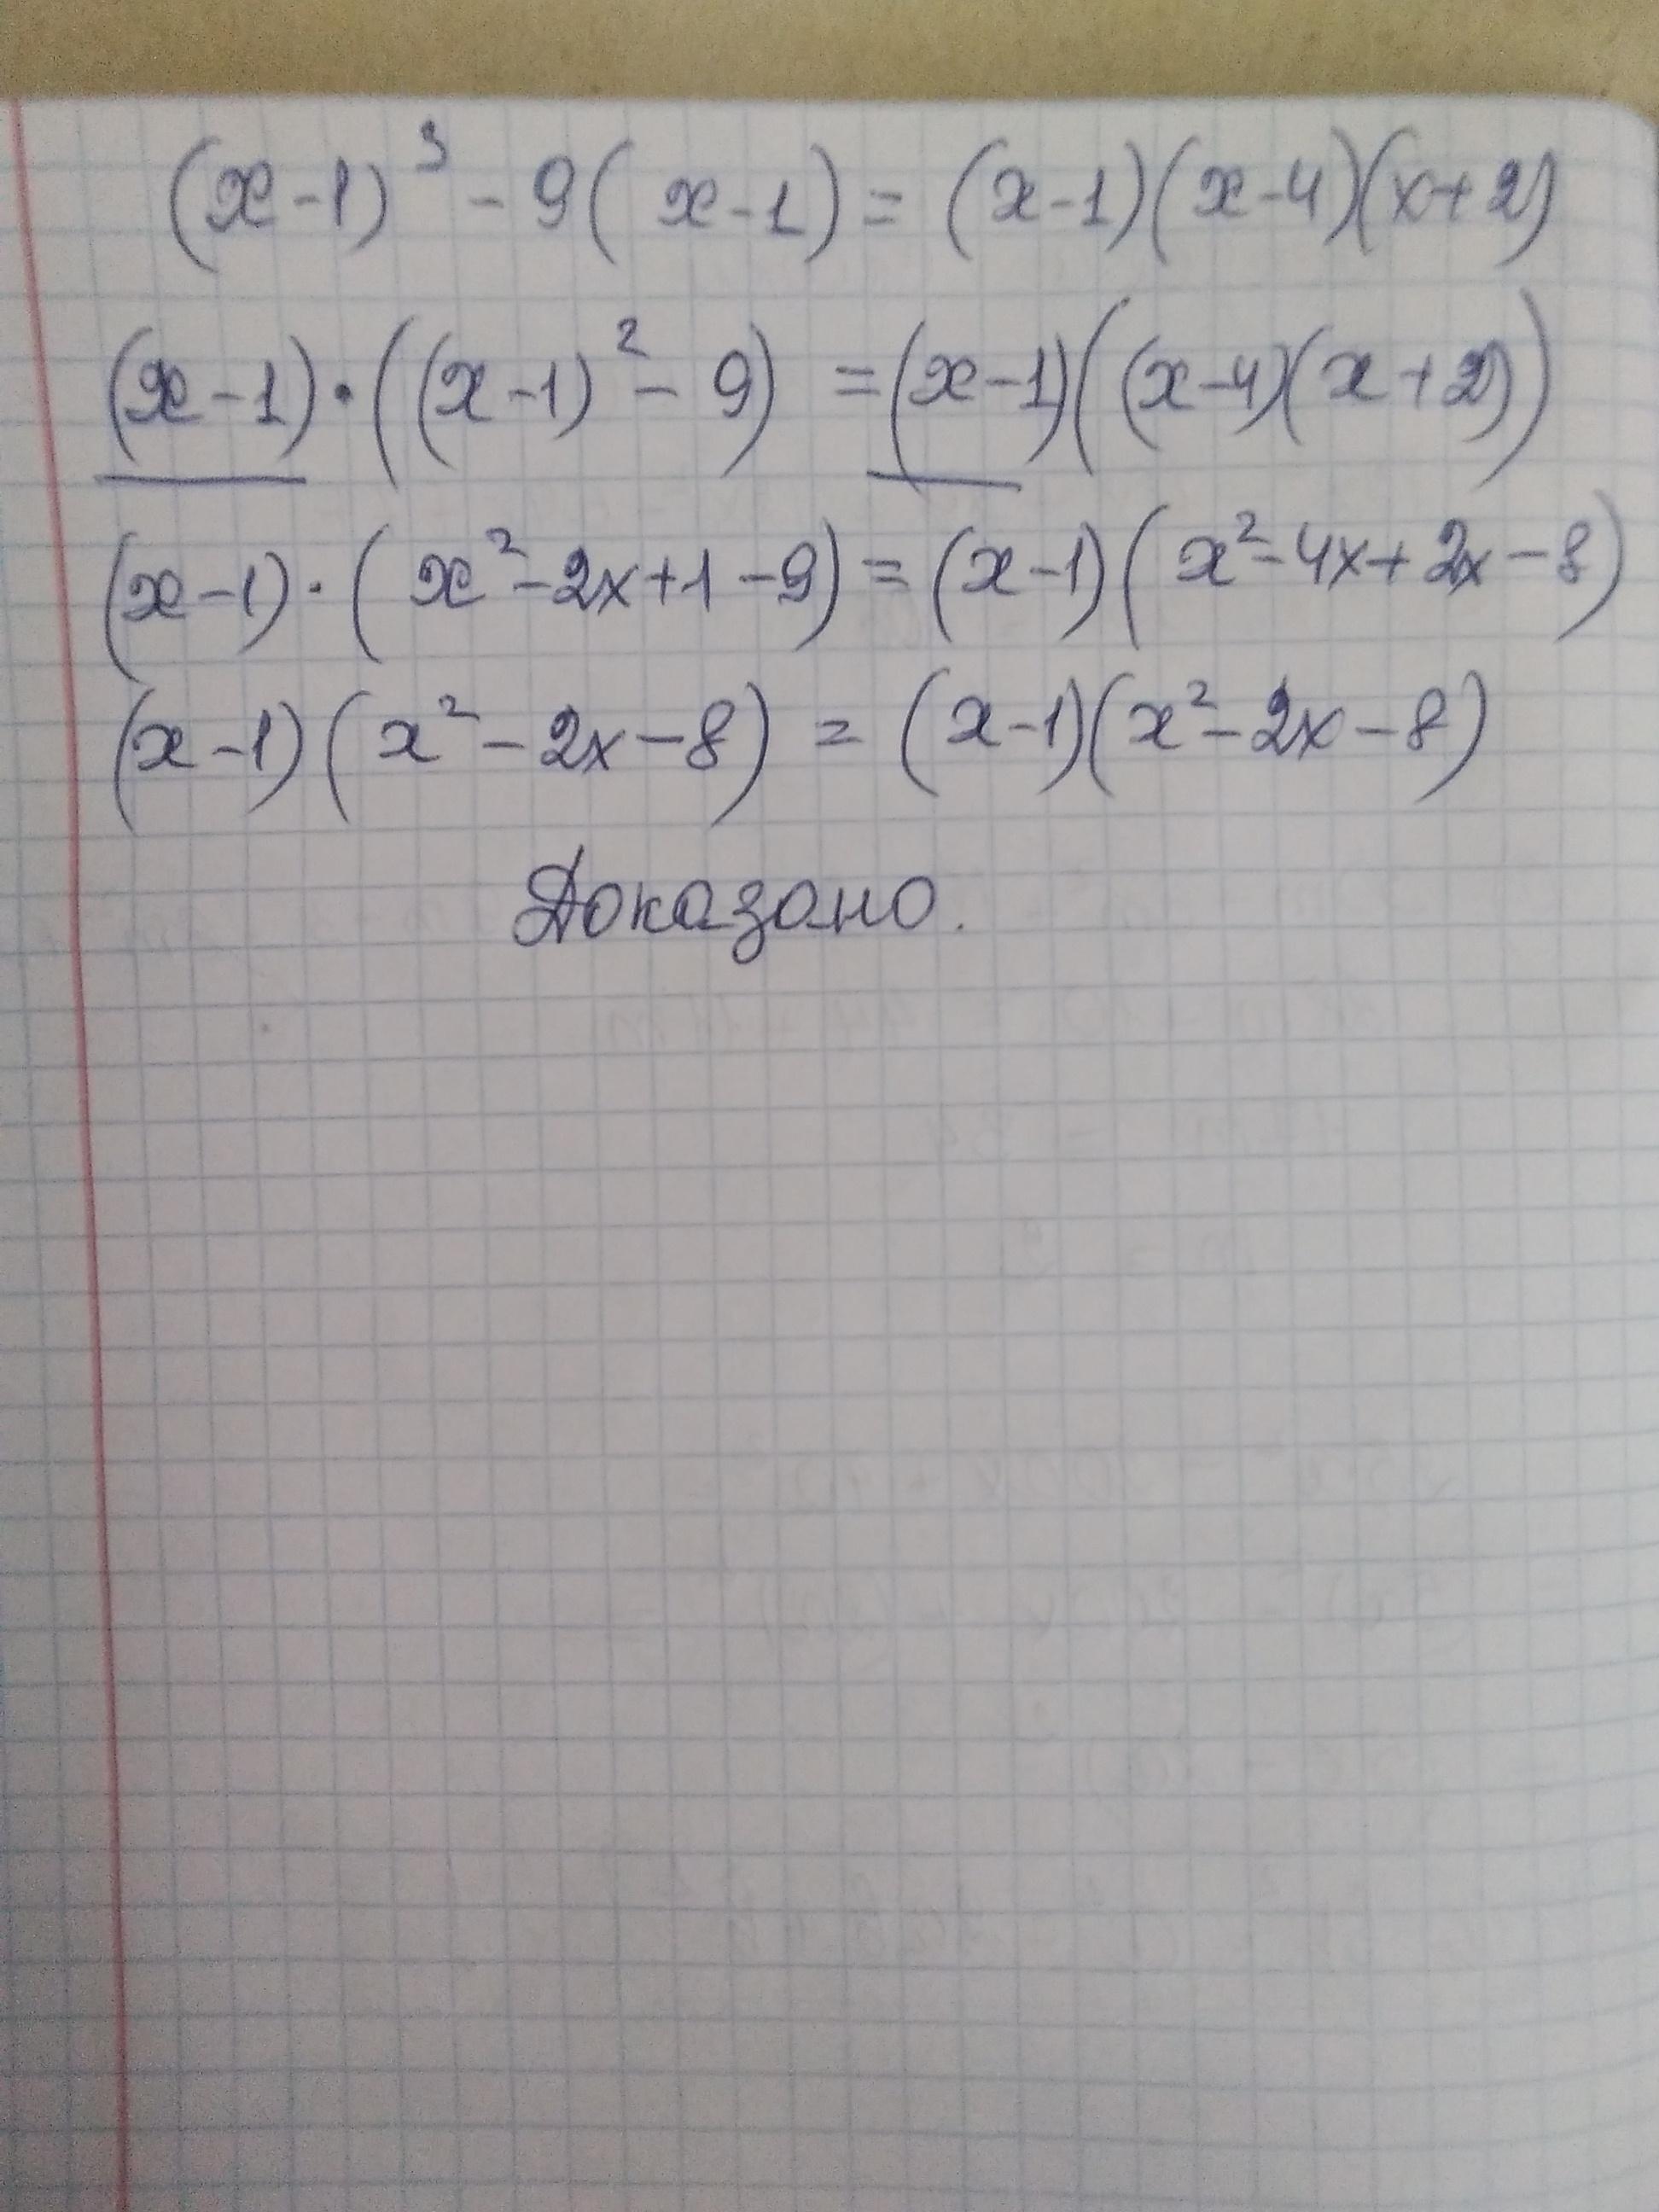 (x-1)³ - 9(x-1) = (x-1)(x-4)(x+2)
(x-1)·((x-1)² - 9) = (x-1)((x-4)(x+2))
(x-1)·(x²-2x+1-9) = (x-1)(x²-4x+2x-8)
(x-1)(x²-2x-8) = (x-1)(x²-2x-8)
Доказано.